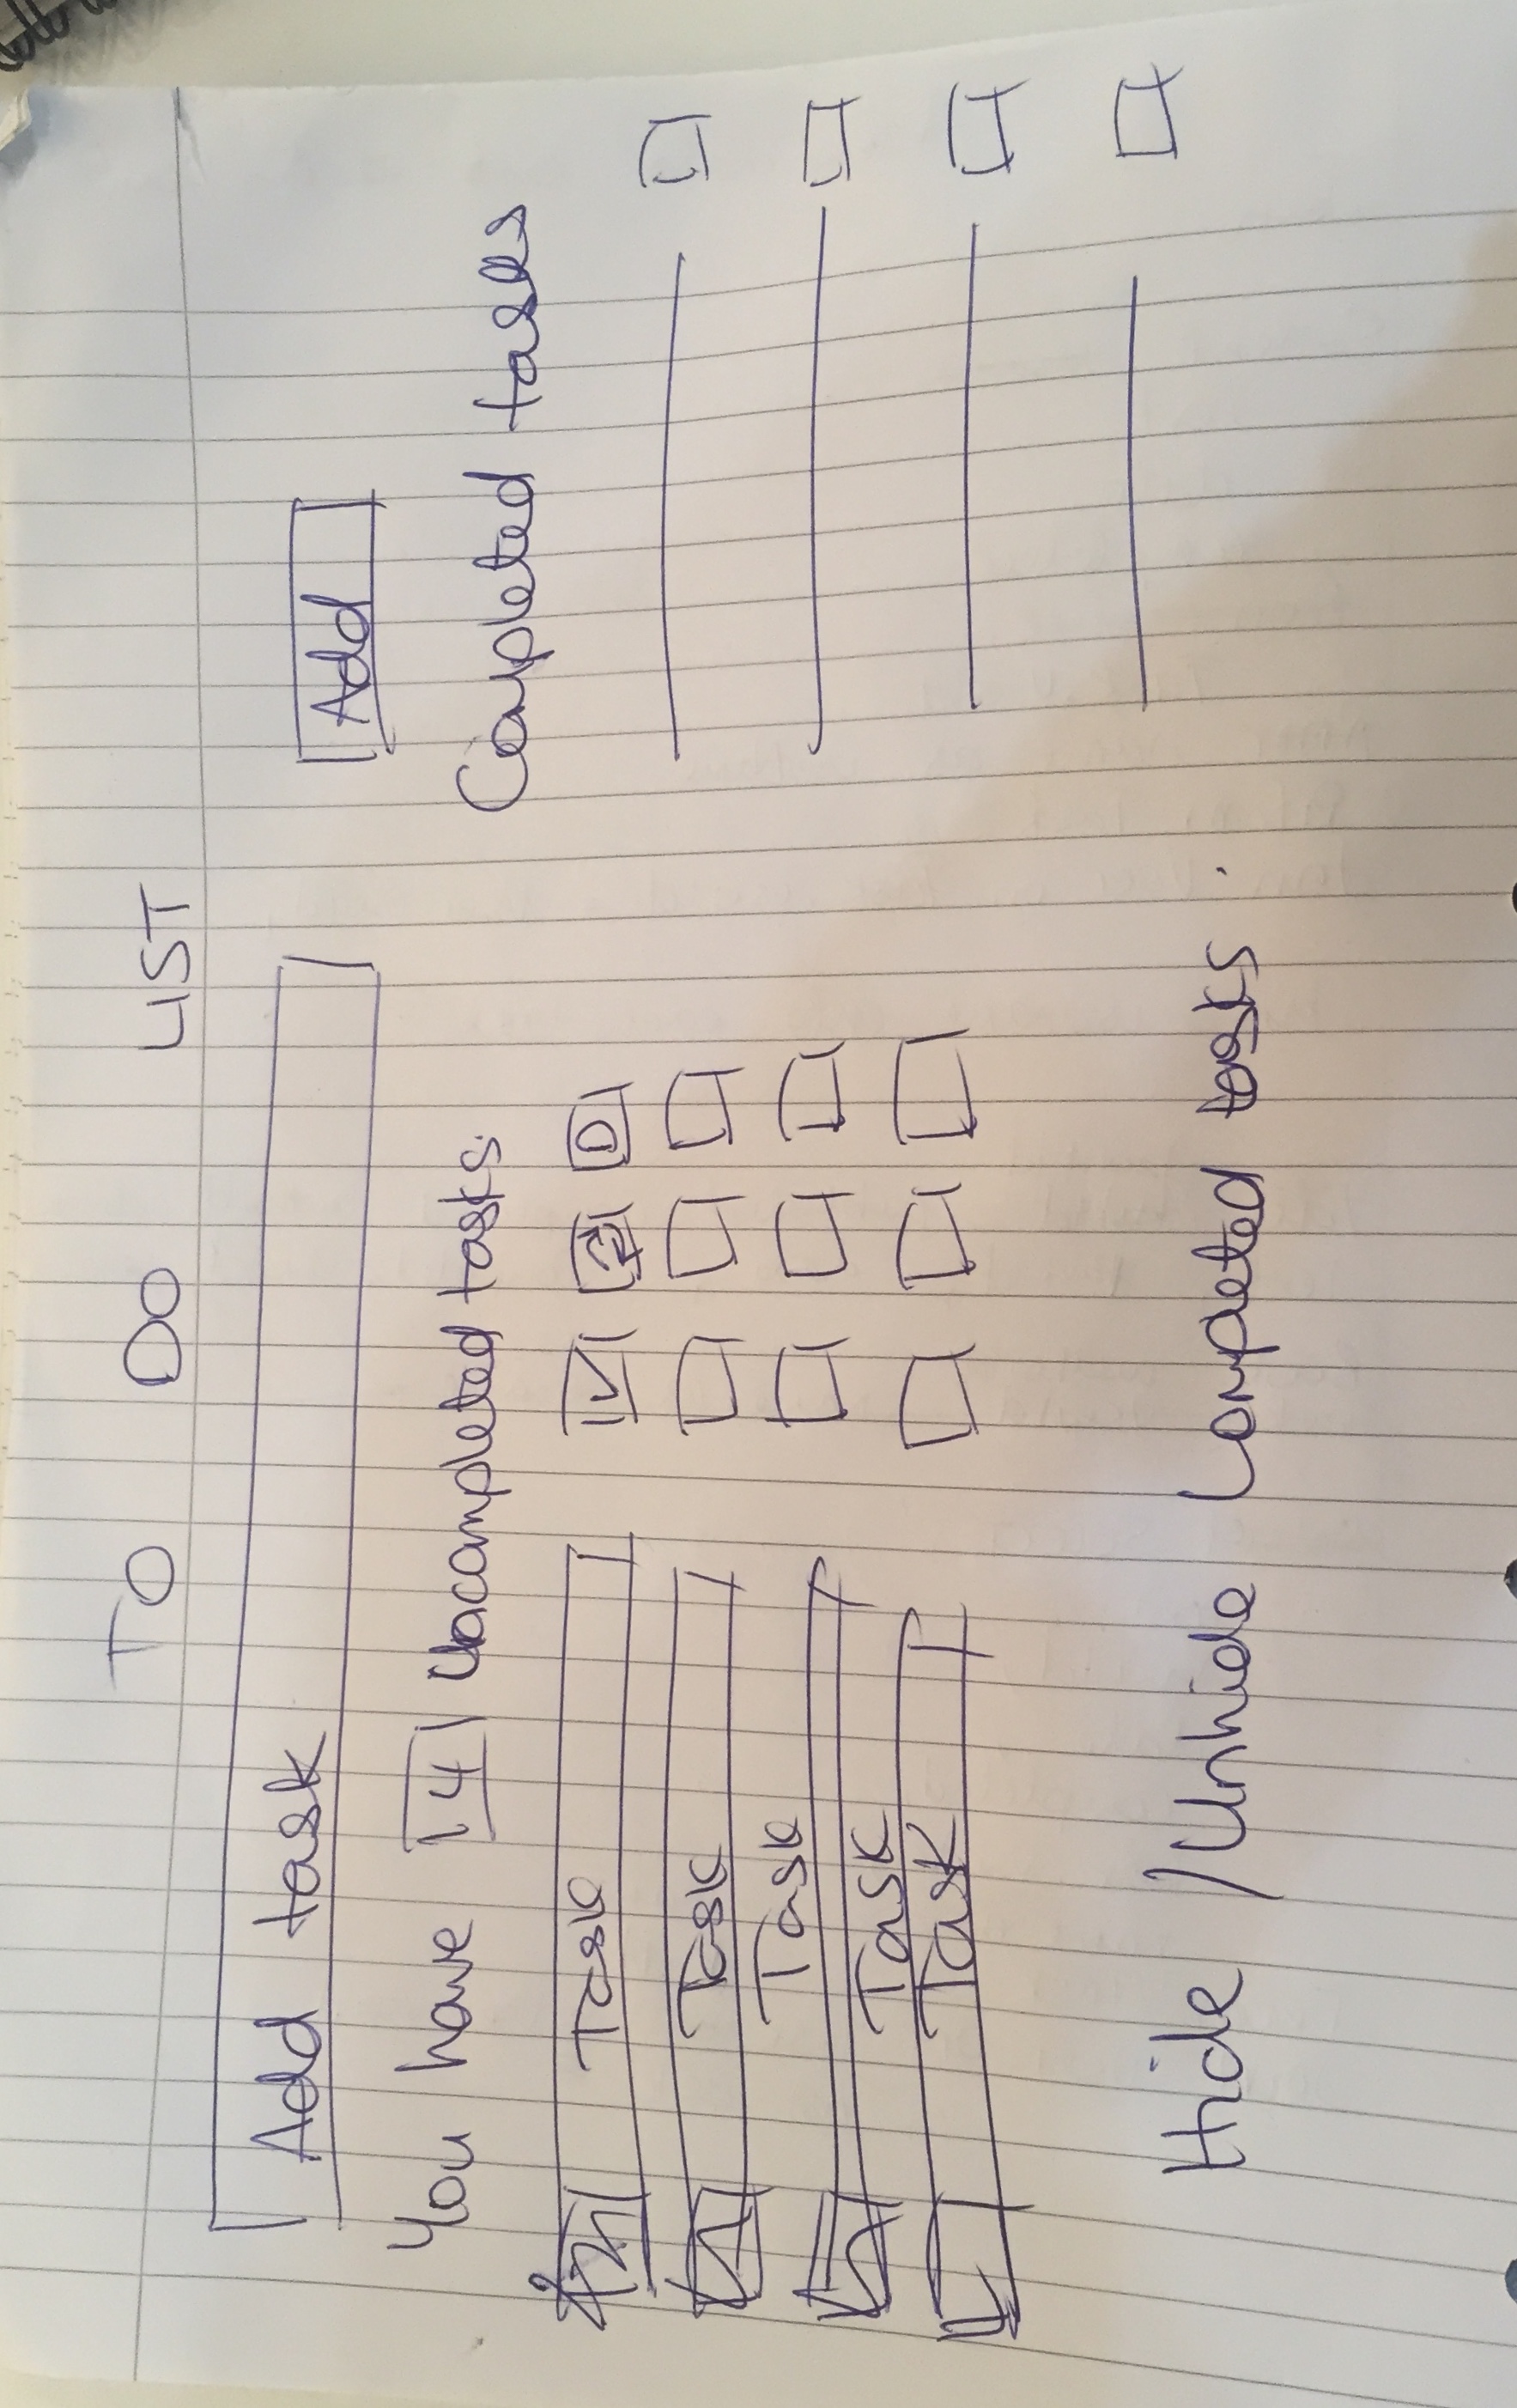 TO DO LIST
Add task
Add
You have 4 Uncompleted tasks.
Completed tasks
Task
Task
Task
Task
Task
Hide / Unhide Completed tasks.